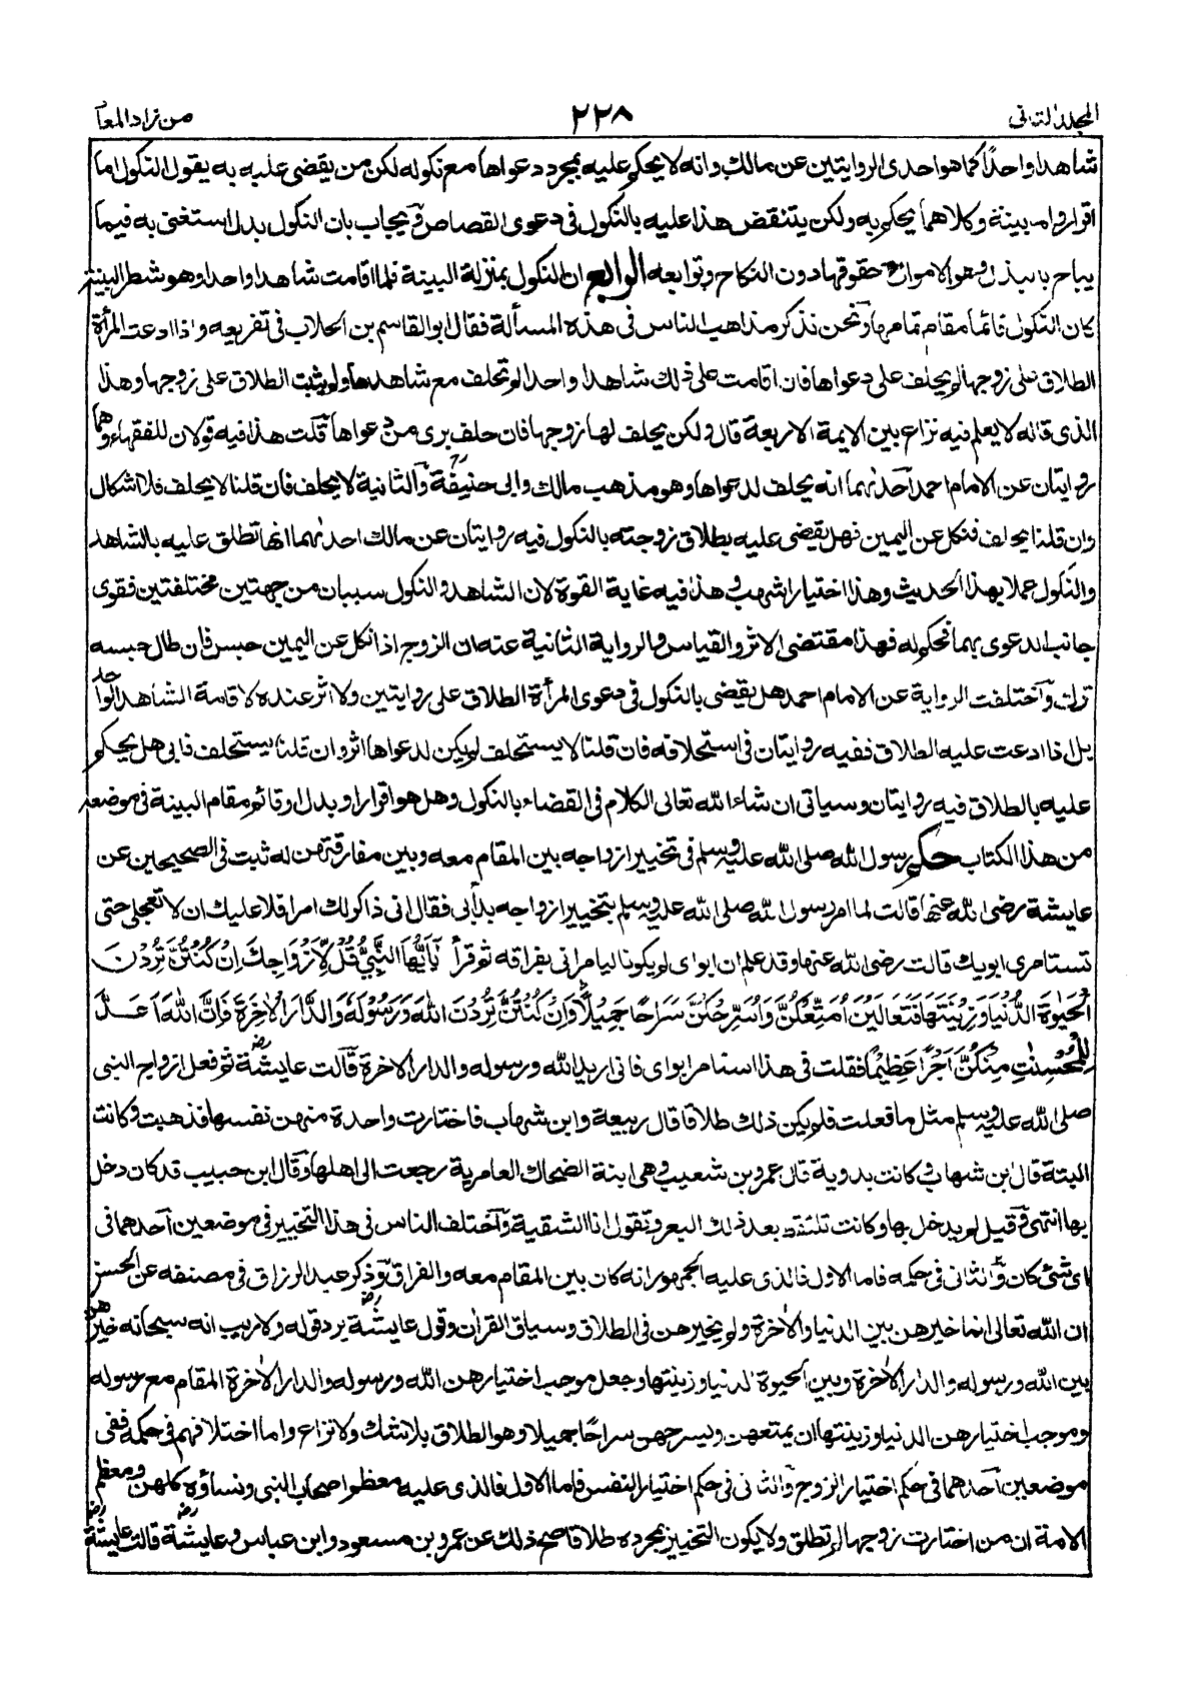 المجلد الثانى
٢٢٨
من زاد المعا
شاهدا واحدًا كما هو احدى الروايتين عن مالك وانه لا يحكم عليه بمجرد دعواها مع نكوله لكن من يقضى عليه به يقول النكول اما
اقرار واما بينة وكلاهما يحكم به ولكن ينتقض هذا عليه بالنكول فى دعوى القصاص ويجاب بان النكول بدل استغنى به فيما
يباح بالبذل وهو الاموال وحقوقها دون النكاح وتوابعه الرابع ان النكول بمنزلة البينة فلما اقامت شاهدا واحدا وهو شطر البينة
كان النكول قائما مقام تمامها ونحن نذكر مذاهب الناس فى هذه المسألة فقال ابو القاسم بن الجلاب فى تفريعه واذا ادعت المرأة
الطلاق على زوجها لم يحلف على دعواها فان اقامت على ذلك شاهدا واحدا لم تحلف مع شاهدها ولم يثبت الطلاق على زوجها وهذا
الذى قاله لا يعلم فيه نزاع بين الايمة الاربعة قال ولكن يحلف لها زوجها فان حلف برى من دعواها قلت هذا فيه قولان للفقهاء وهما
روايتان عن الامام احمد احدٰهما انه يحلف لدعواها وهو مذهب مالك وابى حنيفة والثانية لا يحلف فان قلنا لا يحلف فلا اشكال
وان قلنا يحلف فنكل عن اليمين فهل يقضى عليه بطلاق زوجته بالنكول فيه روايتان عن مالك احدٰهما انها تطلق عليه بالشاهد
والنكول عملا بهذا الحديث وهذا اختيار اشهب وهذا فيه غاية القوة لان الشاهد والنكول سببان من جهتين مختلفتين فقوى
جانب المدعوى بهما فحكم له فهذا مقتضى الاثر والقياس والرواية الثانية عنه ان الزوج اذا نكل عن اليمين حبس فان طال حبسه
ترك واختلفت الرواية عن الامام احمد هل يقضى بالنكول فى دعوى المرأة الطلاق على روايتين ولا اثر عنده لاقامة الشاهد الواحد
بل اذا ادعت عليه الطلاق ففيه روايتان فى استحلافه فان قلنا لا يستحلف لم يكن لدعواها اثر وان قلنا يستحلف فابى هل يحكم
عليه بالطلاق فيه روايتان وسياتى ان شاء الله تعالى الكلام فى القضاء بالنكول وهل هو اقرار او بدل او قائم مقام البينة فى موضعه
من هذا الكتاب حكم رسول الله صلى الله عليه وسلم فى تخيير ازواجه بين المقام معه وبين مفارقتهن له ثبت فى الصحيحين عن
عايشة رضى الله عنها قالت لما امر رسول الله صلى الله عليه وسلم بتخيير ازواجه بدأ بى فقال انى ذاكر لك امرا فلا عليك ان لا تعجلى حتى
تستامرى ابويك قالت رضى الله عنها وقد علم ان ابواى لم يكونا ليامرانى بفراقه ثم قرأ يٰۤاَيُّهَا النَّبِيُّ قُلْ لِّاَزْوَاجِكَ اِنْ كُنْتُنَّ تُرِدْنَ
الْحَيٰوةَ الدُّنْيَا وَزِيْنَتَهَا فَتَعَالَيْنَ اُمَتِّعْكُنَّ وَاُسَرِّحْكُنَّ سَرَاحًا جَمِيْلًا وَاِنْ كُنْتُنَّ تُرِدْنَ اللّٰهَ وَرَسُوْلَهٗ وَالدَّارَ الْاٰخِرَةَ فَاِنَّ اللّٰهَ اَعَدَّ
لِلْمُحْسِنٰتِ مِنْكُنَّ اَجْرًا عَظِيْمًا فقلت فى هذا استامر ابواى فانى اريد الله ورسوله والدار الاخرة قالت عايشة ثم فعل ازواج النبى
صلى الله عليه وسلم مثل ما فعلت فلم يكن ذلك طلاقا قال ربيعة وابن شهاب فاختارت واحدة منهن نفسها فذهبت وكانت
البتة قال ابن شهاب وكانت بدوية قال عمرو بن شعيب وهى ابنة الضحاك العامرية رجعت الى اهلها وقال ابن حبيب قد كان دخل
بها انتهى وقيل لم يدخل بها وكانت تلتقط بعد ذلك البعر وتقول انا الشقية واختلف الناس فى هذا التخيير فى موضعين احدهما فى
اى شئ كان والثانى فى حكمه فاما الاول فالذى عليه الجمهور انه كان بين المقام معه والفراق وذكر عبد الرزاق فى مصنفه عن الحسن
ان الله تعالى انما خيرهن بين الدنيا والاٰخرة ولم يخيرهن فى الطلاق وسياق القراٰن وقول عايشة يرد قوله ولا ريب انه سبحانه خيرهن
بين الله ورسوله والدار الاٰخرة وبين الحيوة الدنيا وزينتها وجعل موجب اختيارهن الله ورسوله والدار الاٰخرة المقام مع رسوله
وموجب اختيارهن الدنيا وزينتها ان يمتعهن ويسرحهن سراحًا جميلا وهو الطلاق بلا شك ولا نزاع واما اختلافهم فى حكمه ففى
موضعين احدهما فى حكم اختيار الزوج والثانى فى حكم اختيار النفس فاما الاول فالذى عليه معظم اصحاب النبى ونساؤه كلهن ومعظم
الامة ان من اختارت زوجها لم تطلق ولا يكون التخيير بمجرده طلاقا صح ذلك عن عمر وبن مسعود وابن عباس وعايشة قالت عايشة